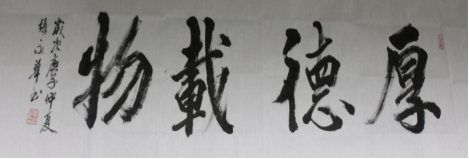 厚德載物
歲次庚子仲夏
永華書